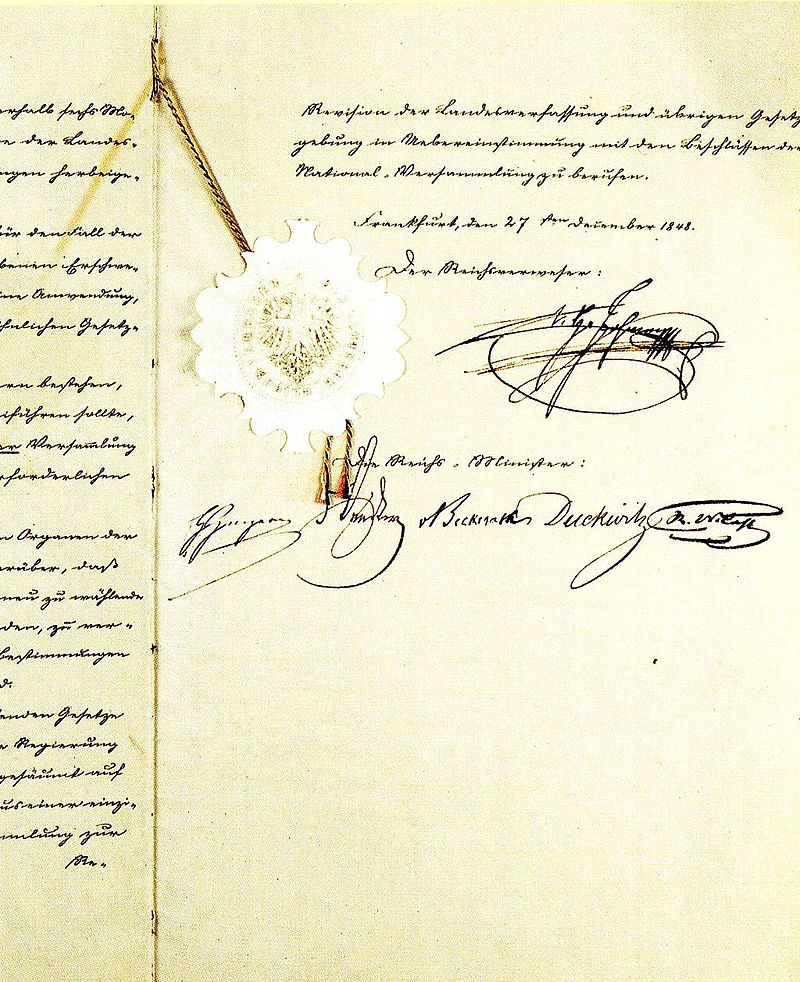 erhalb sechs Mo-
e der Landes-
ngen herbeige-
ür den Fall der
benen Erschwe-
ne Anwendung,
hnlichen Gesetz-
rn bestehen,
iführen sollte,
er Versammlung
rforderlichen
n Organen der
erüber, daß
neu zu wählende
den, zu ver-
bestimmungen
d.
enden Gesetze
e Regierung
gesäumt auf
us einer einzi-
mmlung zur
Re-
Revision der Landesverfassung und übrigen Gesetz
gebung in Uebereinstimmung mit den Beschlüssen der
National-Versammlung zu berufen.
Frankfurt, den 27sten December 1848.
Der Reichsverweser:
Die Reichs-Minister:
vBeckerath Duckwitz R. Mohl